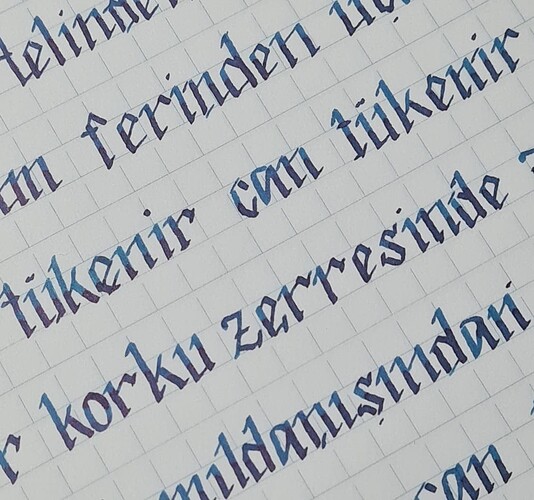 telinde
an ferinden
tükenir can tükenir
r korku zerresinde
mıldanışından
can